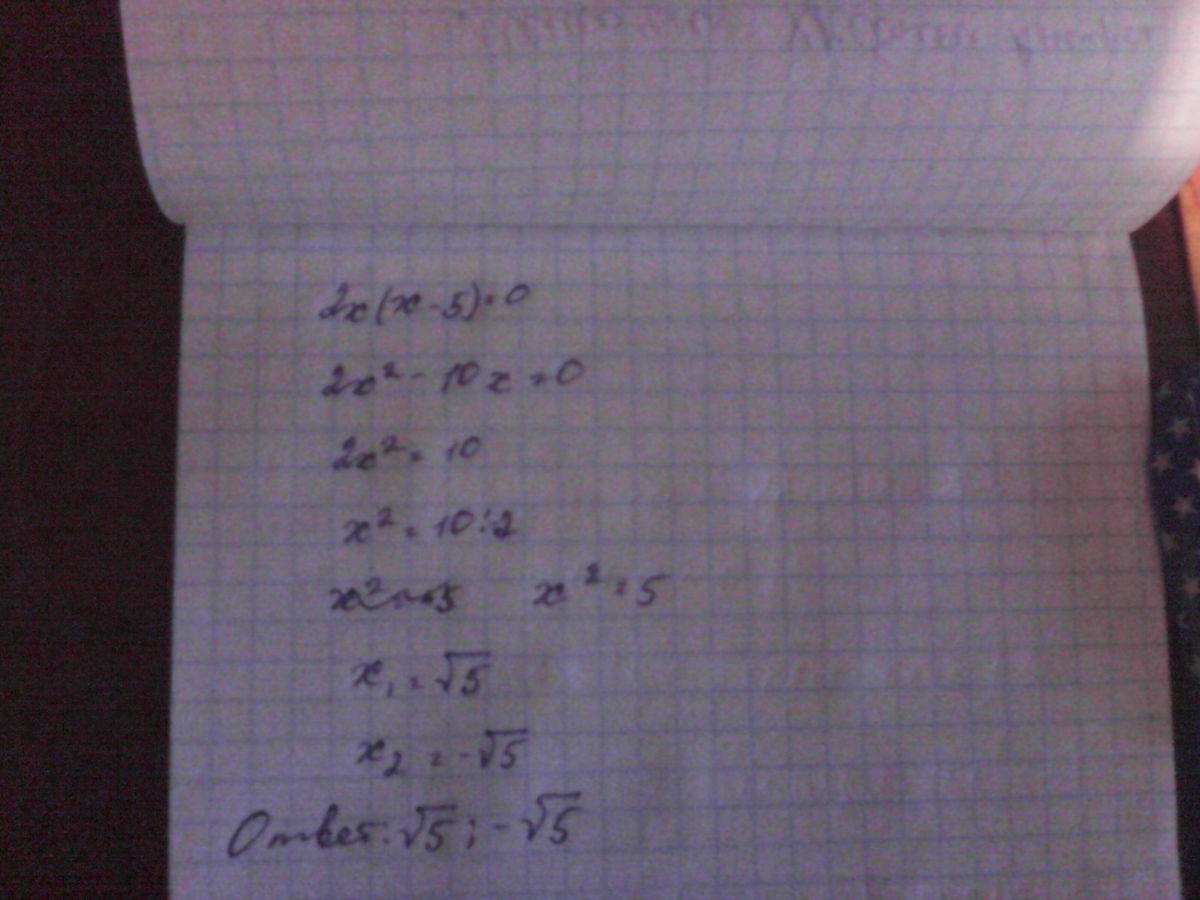 2x(x-5)=0
2x²-10x=0
2x²=10
x²=10:2
x²=5
x₁=√5
x₂=-√5
Ответ: √5; -√5